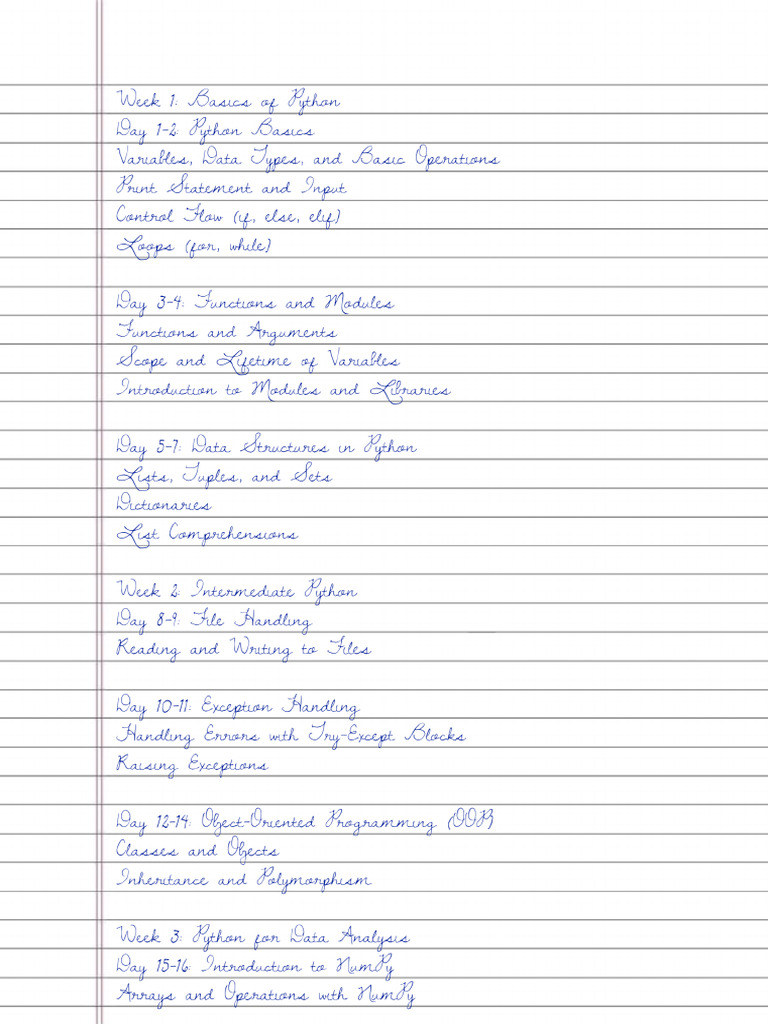 Week 1: Basics of Python
Day 1-2: Python Basics
Variables, Data Types, and Basic Operations
Print Statement and Input
Control Flow (if, else, elif)
Loops (for, while)
Day 3-4: Functions and Modules
Functions and Arguments
Scope and Lifetime of Variables
Introduction to Modules and Libraries
Day 5-7: Data Structures in Python
Lists, Tuples, and Sets
Dictionaries
List Comprehensions
Week 2: Intermediate Python
Day 8-9: File Handling
Reading and Writing to Files
Day 10-11: Exception Handling
Handling Errors with Try-Except Blocks
Raising Exceptions
Day 12-14: Object-Oriented Programming (OOP)
Classes and Objects
Inheritance and Polymorphism
Week 3: Python for Data Analysis
Day 15-16: Introduction to NumPy
Arrays and Operations with NumPy